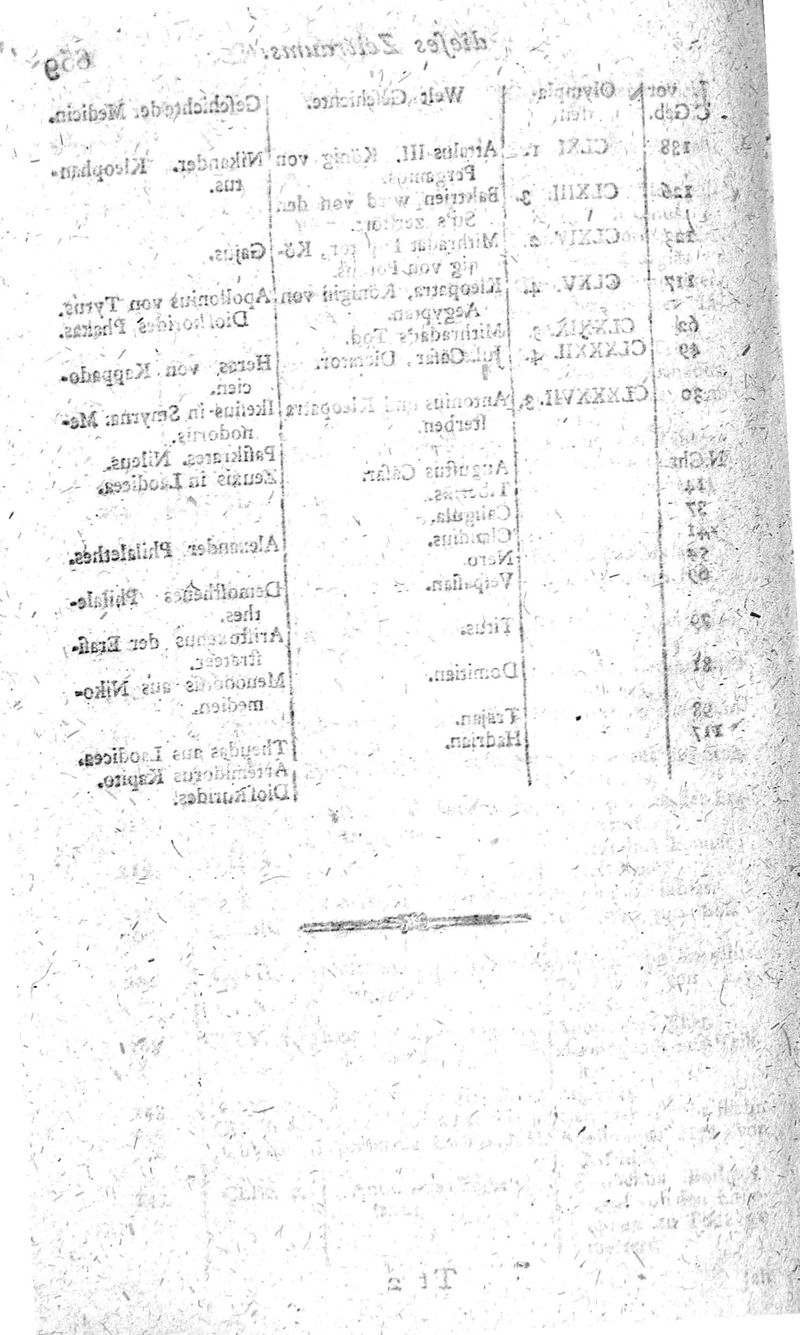 dieſes Zeitraums. 659
vor Olympia- Welt-Geſchichte. Geſchichte der Medicin.
C. Geb. den.
138 CLXI 1. Attalus III. König von Nikander. Kleophan-
Pergamus. tus.
126 CLXIII. 3. Baktrien wird von den
Su's zerſtört.
123 CLXIV. 2. Mithradat Kö- Gajus.
nig von Pontus.
117 CLXV. 4. Kleopatra, Königin von Apollonius von Tyrus.
Aegypten. Dioſkorides Phakas.
62 CLXXIX. 3. Mithradats Tod.
49 CLXXXII. 4. Jul. Cäſar, Dictator. Heras von Kappado-
cien.
30 CLXXXVII. 3. Antonius und Kleopatra Ikeſius in Smyrna. Me-
ſterben. nodorus.
Paſikrates. Nileus.
N. Chr. Auguſtus Cäſar. Zeuxis in Laodicea.
14 Tiberius.
37 Caligula.
41 Claudius. Alexander Philalethes.
54 Nero.
69 Veſpaſian. Demoſthenes Philale-
thes.
79 Titus. Ariſtoxenus der Eraſi-
ſtrateer.
81 Domitian. Menodotus aus Niko-
medien.
98 Trajan.
117 Hadrian. Theudas aus Laodicea.
Artemidorus Kapito.
Dioſkurides.
T t 2